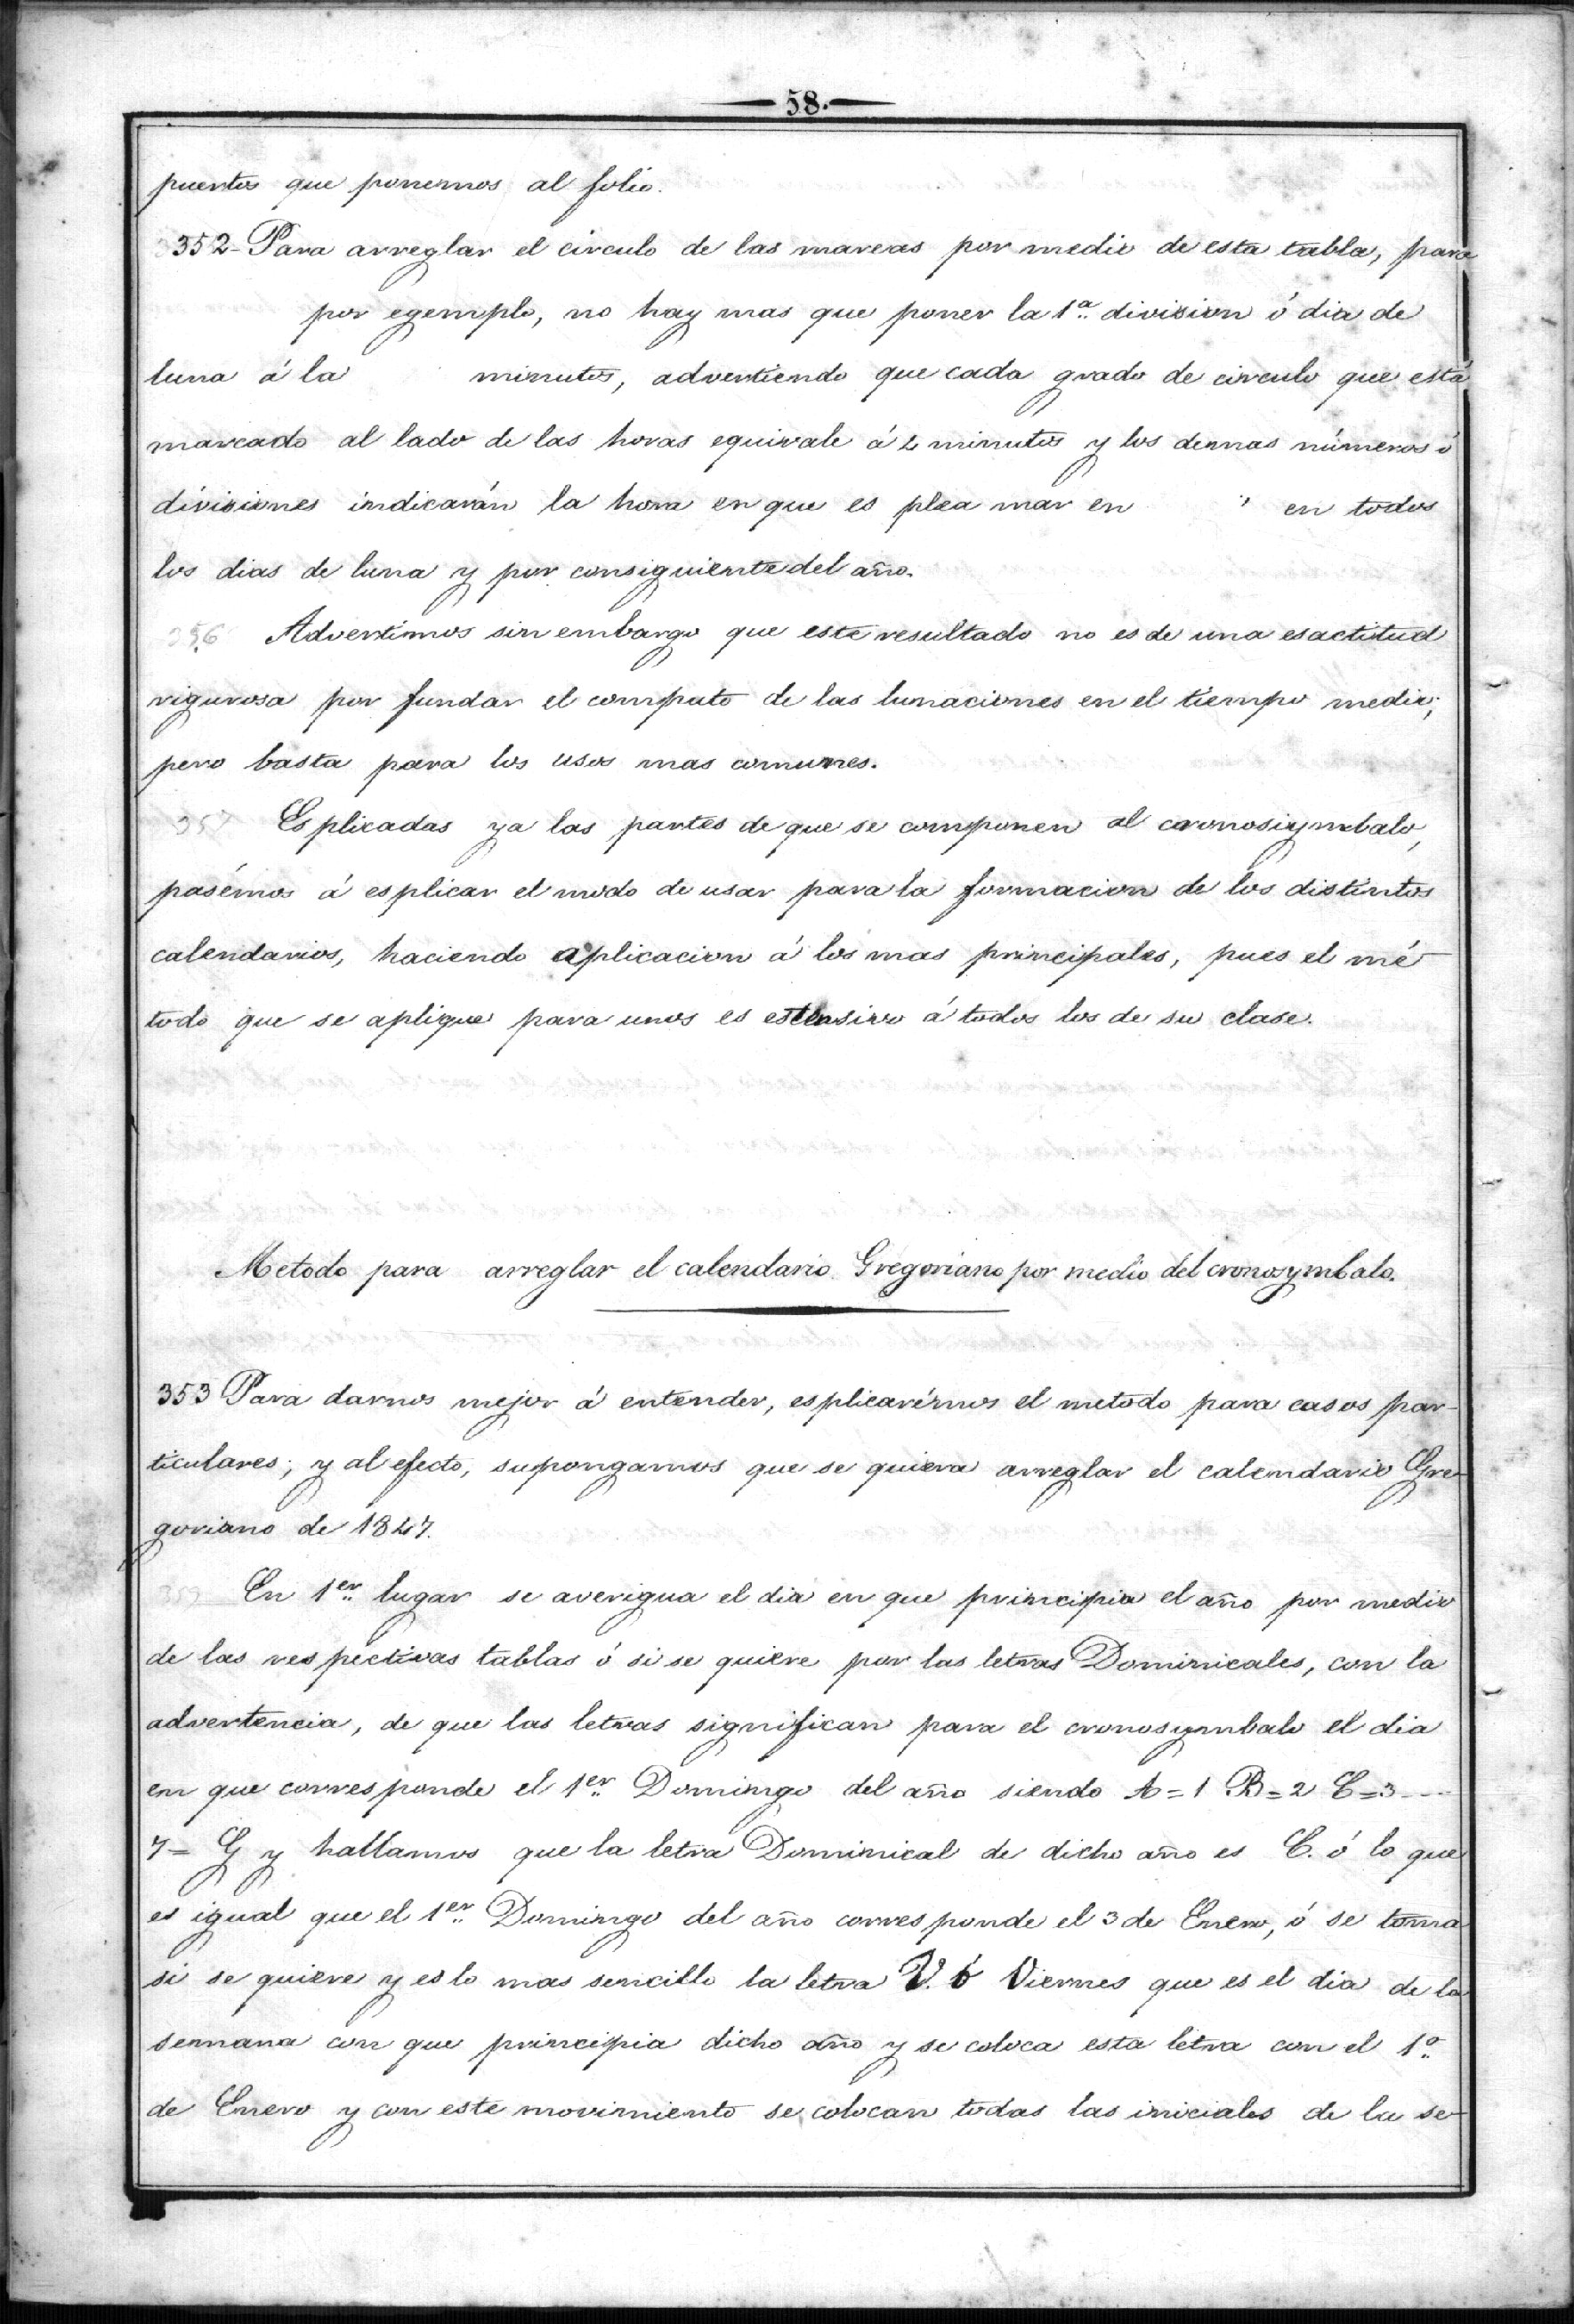 58.
puertos que ponemos al folio.
352- Para arreglar el circulo de las mareas por medio de esta tabla, para
por egemplo, no hay mas que poner la 1ª division ó dia de
luna á la minutos, advertiendo que cada grado de circulo que está
marcado al lado de las horas equivale á 4 minutos y los demas números ó
divisiones indicarán la hora en que es plea mar en en todos
los dias de luna y por consiguiente del año.
356 Advertimos sin embargo que este resultado no es de una esactitud
rigurosa por fundar el computo de las lunaciones en el tiempo medio;
pero basta para los usos mas comunes.
357 Esplicadas ya las partes de que se componen al cronosiymbalo,
pasémos á esplicar el modo de usar para la formacion de los distintos
calendarios, haciendo aplicacion á los mas principales, pues el mé-
todo que se aplique para unos es estensivo á todos los de su clase.
Metodo para arreglar el calendario Gregoriano por medio del cronosymbalo.
353 Para darnos mejor á entender, esplicarémos el metodo para casos par-
ticulares; y al efecto, supongamos que se quiera arreglar el calendario Gre-
goriano de 1847.
En 1er lugar se averigua el dia en que principia el año por medio
de las respectivas tablas ó si se quiere por las letras Dominicales, con la
advertencia, de que las letras significan para el cronosymbalo el dia
em que corresponde el 1er Domingo del año siendo A=1 B=2 C=3----
7= G y hallamos que la letra Dominical de dicho año es C. ó lo que
es igual que el 1er Domingo del año corresponde el 3 de Enero, ó se toma
si se quiere y es lo mas sencillo la letra V. ó Viernes que es el dia de la
semana con que principia dicho año y se coloca esta letra con el 1º
de Enero y con este movimiento se colocan todas las iniciales de la se-